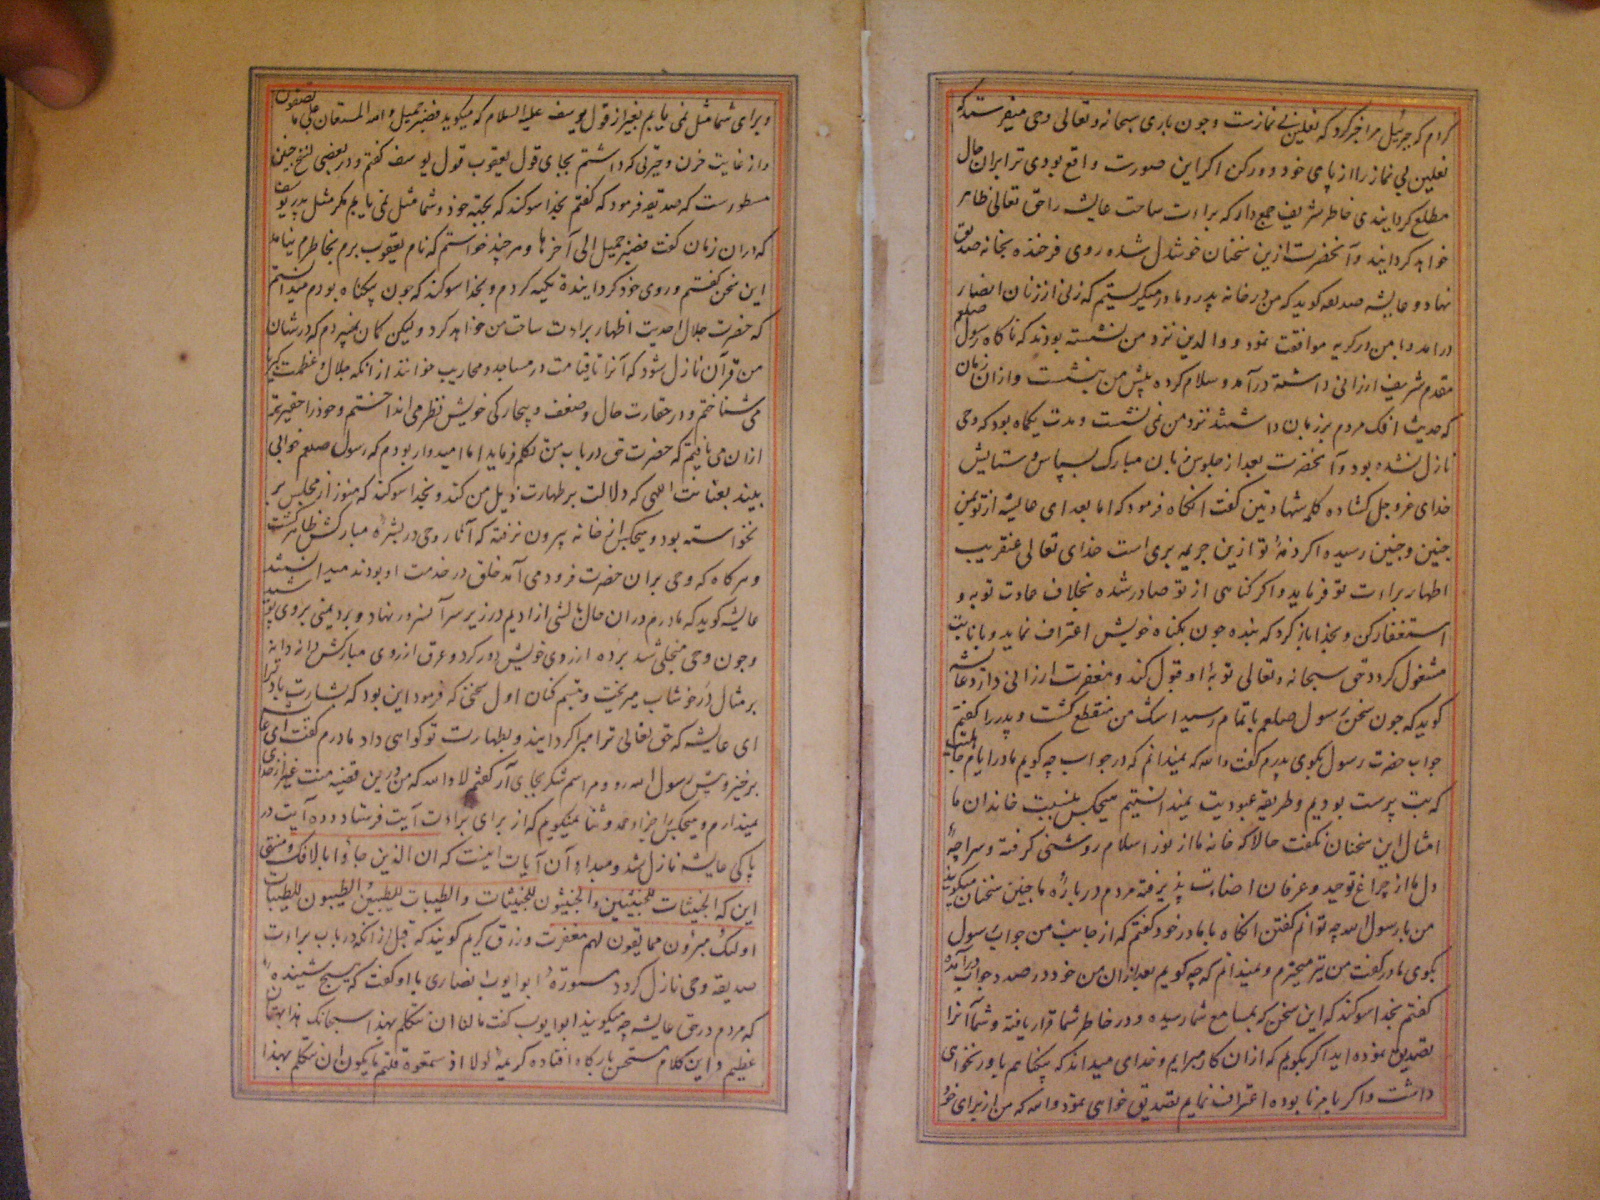 کردم که جبرئیل مرا خبر کرد که نعلین بی نمازست و چون باری سبحانه و تعالی وحی میفرستد که
نعلین بی نماز را از پای خود دور کن اکر این صورت واقع بودی ترا بران حال
مطلع کردانیدی خاطر شریف جمع دار که براءت ساحت عایشه را حق تعالی ظاهر
خواهد کردانید و آنحضرت ازین سخنان خوشدل شده روی فرخنده بخانه صدیق
نهاد و عایشه صدیقه کوید که من در خانه پدر و مادر میکریستم که زنی از زنان انصار
درآمد و با من در کریه موافقت نمود و والدین نزد من نشسته بودند که ناکاه رسول صلعم
مقدم شریف ارزانی داشته درآمد و سلام کرده پیش من بنشست و ازان زمان
که حدیث افک مردم بر زبان داشتند نزد من نمی نشست و مدت یکماه بود که وحی
نازل نشده بود و آنحضرت بعد از جلوس زبان مبارک بسپاس و ستایش
خدای عز و جل کشاده کلمه شهادتین کفت انکاه فرمود که اما بعد ای عایشه از تو بمن
چنین و چنین رسیده اکر ذمهٔ تو ازین جریمه بری است خدای تعالی عنقریب
اظهار براءت تو فرماید و اکر کناهی از تو صادر شده بخلاف عادت توبه و
استغفار کن و بخدا باز کرد که بنده چون بکناه خویش اعتراف نماید و بانابت
مشغول کردد حق سبحانه و تعالی توبهٔ او قبول کند و مغفرت ارزانی دارد عایشه
کوید که چون سخن رسول صلعم باتمام رسید اشک من منقطع کشت و پدر را کفتم
جواب حضرت رسول بکوی پدرم کفت والله که نمیدانم که در جواب چه کویم ما در ایام جاهلیت
که بت پرست بودیم و طریقه عبودیت نمیدانستیم هیچکس بنسبت خاندان ما
امثال این سخنان نکفت حالا که خانه ما از نور اسلام روشنی کرفته و سراچهٔ
دل ما از چراغ توحید و عرفان اضاءت پذیرفته مردم در بارهٔ ما چنین سخنان میکویند
من با رسول الله چه توانم کفتن انکاه با مادر خود کفتم که از جانب من جواب رسول
بکوی مادر کفت من نیز متحیرم و نمیدانم که چه کویم بعد ازان من خود در صدد جواب درآمده
کفتم بخدا سوکند که این سخن که بمسامع شما رسیده و در خاطر شما قرار یافته و شما آنرا
تصدیق نموده اید اکر بکویم که ازان کار مبرایم و خدای میداند که بیکناهم باور نخواهی
داشت و اکر بامر نابوده اعتراف نمایم تصدیق خواهی نمود والله که من از برای خود
و برای شما مثل نمی یابم بغیر از قول یوسف علیه السلام که میکوید فصبر جمیل والله المستعان علی ما تصفون
و از غایت حزن و حیرتی که داشتم بجای قول یعقوب قول یوسف کفتم و در بعضی نسخ چنین
مسطورست که صدیقه فرمود که کفتم بخدا سوکند که بجهته خود و شما مثل نمی یابم مکر مثل پدر یوسف
که دران زمان کفت فصبر جمیل الی آخرها و هر چند خواستم که نام یعقوب برم بخاطرم نیامد
این سخن کفتم و روی خود کردانیده تکیه کردم و بخدا سوکند که چون بیکناه بودم میدانستم
که حضرت جلال احدیت اظهار براءت ساحت من خواهد کرد ولیکن کمان نمیبردم که در شان
من قرآن نازل شود که آنرا تا قیامت در مساجد و محاریب خوانند از انکه جلال و عظمت کبریا
می شناختم و در حقارت حال و ضعف و بیچارکی خویش نظر می انداختم و خود را حقیرتر
ازان می یافتم که حضرت حق در باب من تکلم فرماید اما امیدوار بودم که رسول صلعم خوابی
بیند بعنایت الهی که دلالت بر طهارت ذیل من کند و بخدا سوکند که هنوز از مجلس بر
نخواسته بود و هیچکس از خانه بیرون نرفته که آثار وحی در بشرهٔ مبارکش ظاهر کشت
و هر کاه که وحی بران حضرت فرود می آمد خلق در خدمت او بودند میدانستند
عایشه کوید که مادرم دران حال بالشی از ادیم در زیر سر آن سرور نهاد و برد یمنی بروی پوشید
و چون وحی منجلی شد برده از روی خویش دور کرد و عرق از روی مبارکش دانه دانه
بر مثال در خوشاب میریخت و تبسم کنان اول سخنی که فرمود این بود که بشارت باد ترا
ای عایشه که حق تعالی ترا مبرا کردانید و بطهارت تو کواهی داد مادرم کفت ای عایشه
برخیز و پیش رسول الله رو و مراسم شکر بجای آر کفتم لا والله که من درین قضیه منت غیر از خدای
نمیدارم و هیچکس را جز او حمد و ثنا نمیکویم که از برای براءت آیت فرستاد و ده آیت در
پاکی عایشه نازل شد و مبداء آن آیات اینست که ان الذین جاؤا بالافک و منتهی
این که الخبیثات للخبیثین و الخبیثون للخبیثات و الطیبات للطیبین و الطیبون للطیبات
اولئک مبرؤن مما یقولون لهم مغفرت و رزق کریم کویند که قبل از انکه در باب براءت
صدیقه وحی نازل کردد مستورهٔ ابو ایوب انصاری با او کفت که هیچ شنیدهٔ
که مردم در حق عایشه چه میکویند ابو ایوب کفت ما لنا ان نتکلم بهذا سبحانک هذا بهتان
عظیم و این کلام مستحسن بارکاه افتاده کریمهٔ لولا اذ سمعتموه قلتم ما یکون لنا ان نتکلم بهذا